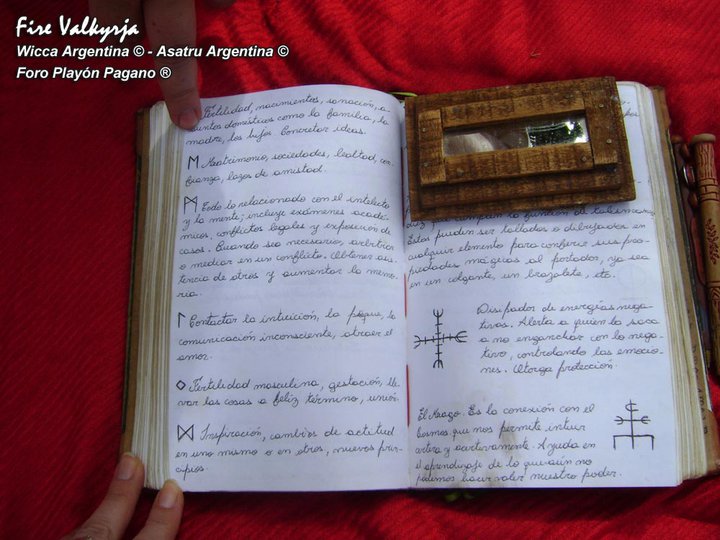 Fire Valkyrja
Wicca Argentina © - Asatru Argentina ©
Foro Playón Pagano ®
Fertilidad, nacimientos, sanación, a-
suntos domésticos como la familia, la
madre, los hijos. Concretar ideas.
ᛖ Matrimonio, sociedades, lealtad, con-
fianza, lazos de amistad.
ᛗ Todo lo relacionado con el intelecto
y la mente; incluye exámenes acadé-
micos, conflictos legales y exposición de
casos. Cuando sea necesario, arbitrar
o mediar en un conflicto. Obtener asis-
tencia de otros y aumentar la memo-
ria.
ᛚ Contactar la intuición, la psique, la
comunicación inconsciente, atraer el
amor.
ᛜ Fertilidad masculina, gestación, lle-
var las cosas a feliz término, unión.
ᛞ Inspiración, cambios de actitud
en uno mismo o en otros, nuevos prin-
cipios
que cumplan la función de talismanes.
Estos pueden ser tallados o dibujados en
cualquier elemento para conferir sus pro-
piedades mágicas al portador, ya sea
en un colgante, un brazalete, etc.
Disipador de energías nega-
tivas. Alerta a quien lo saca
a no enganchar con lo nega-
tivo, controlando las emocio-
nes. Otorga protección.
El Arago. Es la conexión con el
Cosmos que nos permite intuir
certera y acertivamente. Ayuda en
el aprendizaje de lo que aún no
podemos hacer valer nuestro poder.